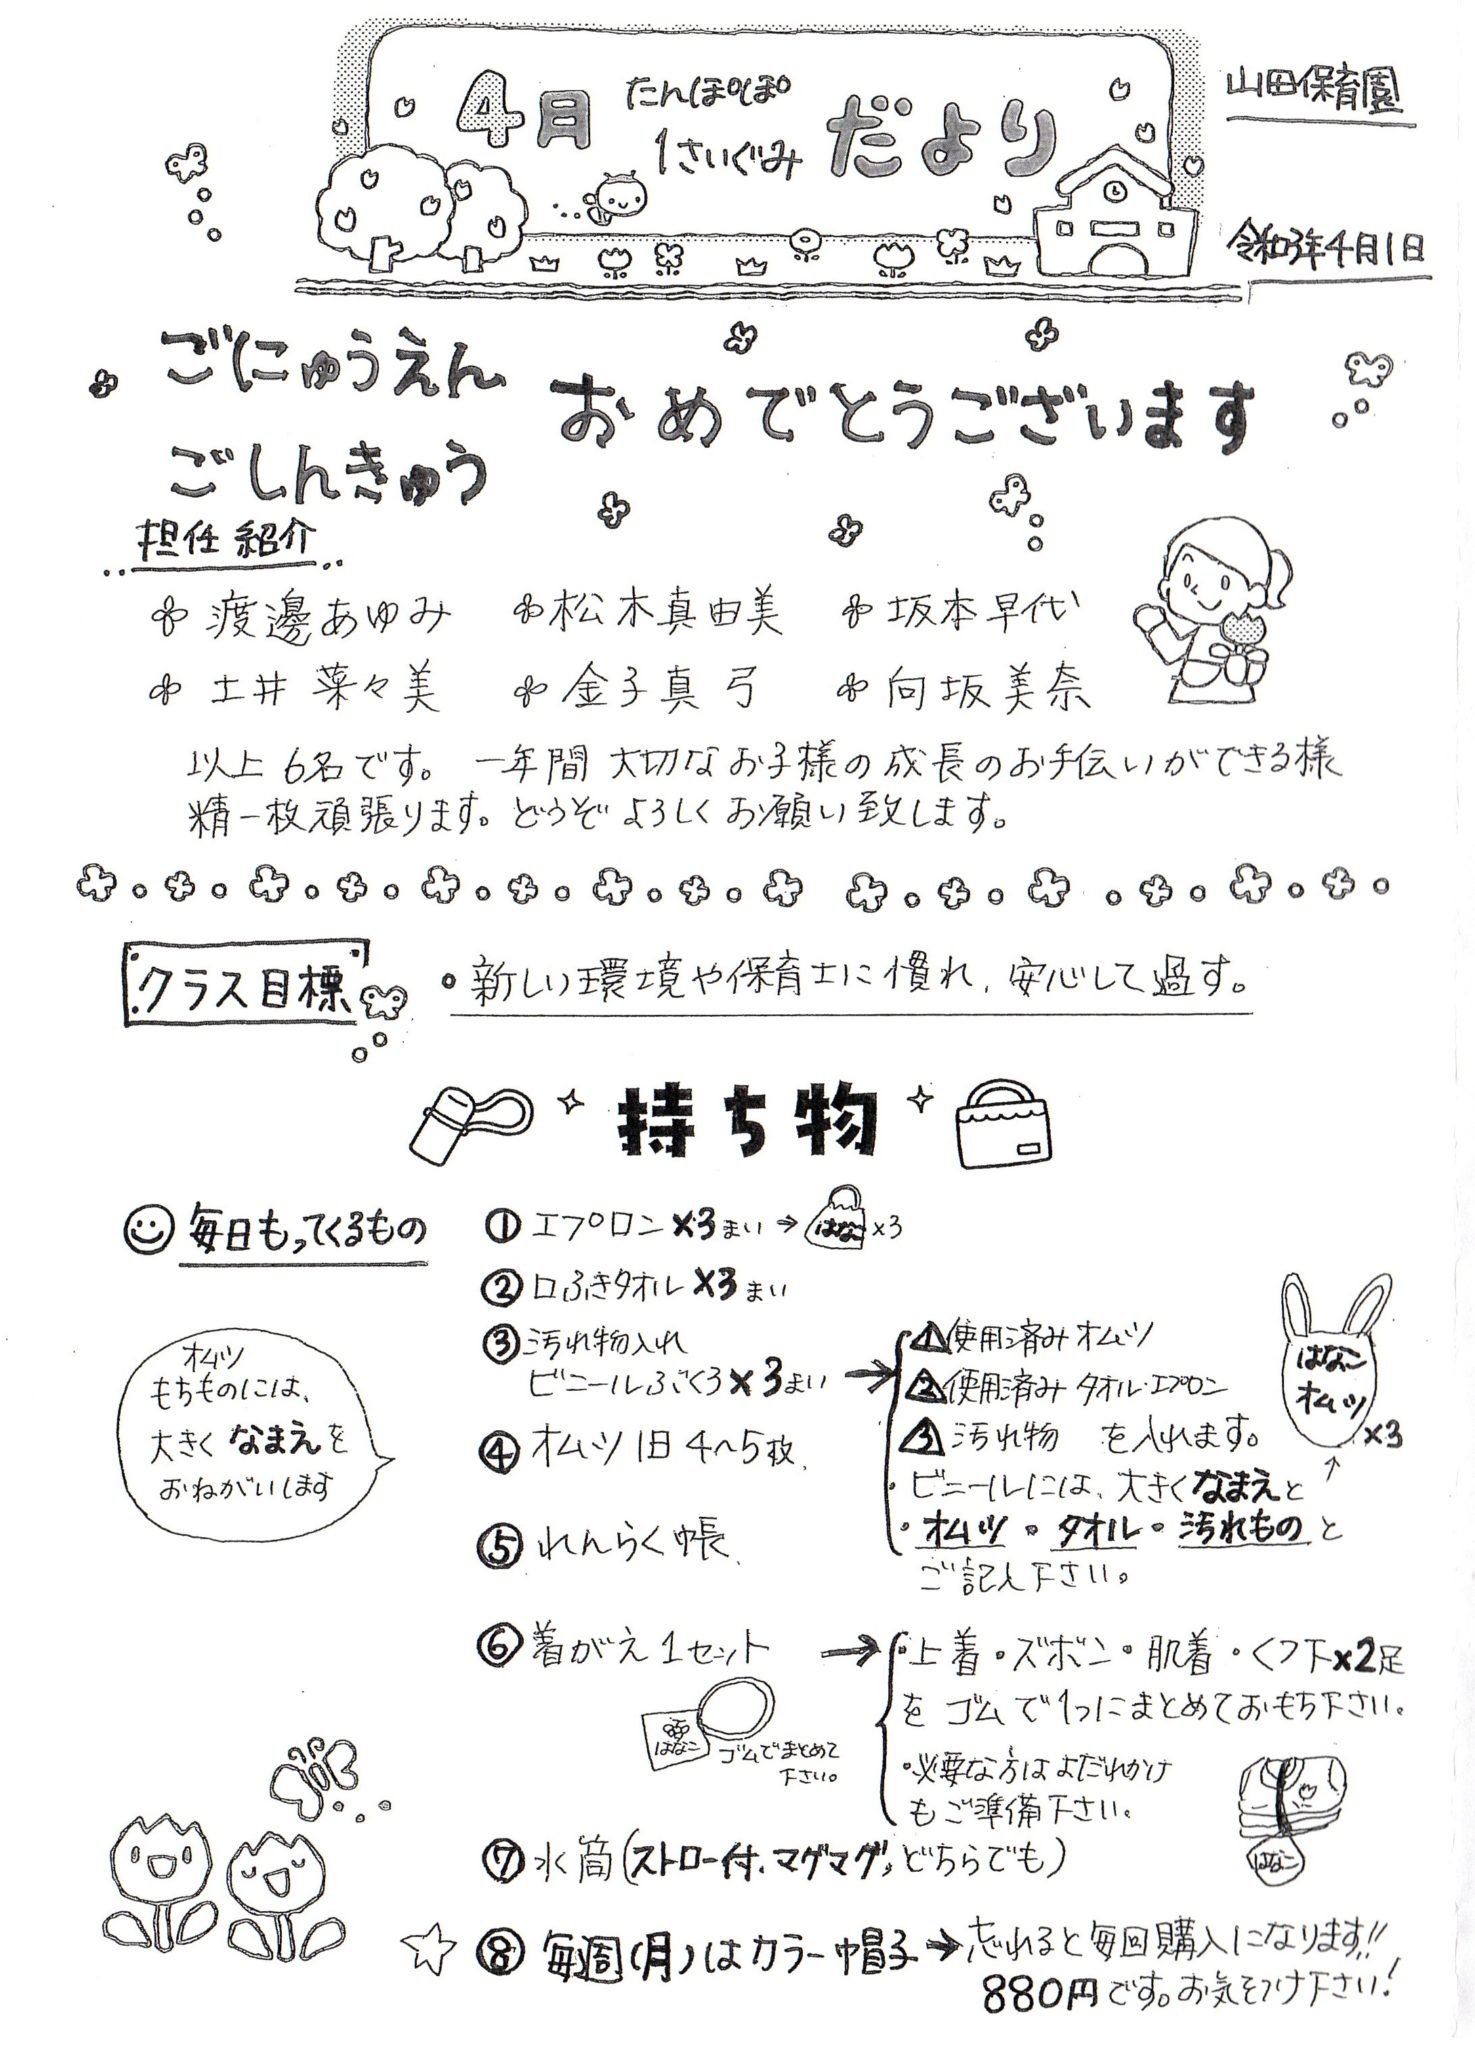 山田保育園
4月 たんぽぽ 1さいぐみ だより
令和3年4月1日
ごにゅうえん
ごしんきゅう
おめでとうございます
担任紹介
渡邊あゆみ 松木真由美 坂本早代
土井菜々美 金子真弓 向坂美奈
以上6名です。一年間大切なお子様の成長のお手伝いができる様
精一杯頑張ります。どうぞよろしくお願い致します。
クラス目標
・新しい環境や保育士に慣れ、安心して過す。
持ち物
毎日もってくるもの
オムツ
もちものには、
大きくなまえを
おねがいします
① エプロン×3まい→
はなこ ×3
② 口ふきタオル×3まい
③ 汚れ物入れ
ビニールぶくろ×3まい→
1 使用済みオムツ
2 使用済みタオル・エプロン
3 汚れ物 を入れます。
・ビニールには、大きくなまえと
・オムツ・タオル・汚れものと
ご記入下さい。
はなこ
オムツ
×3
④ オムツ1日4〜5枚
⑤ れんらく帳
⑥ 着がえ1セット→
・上着・ズボン・肌着・くつ下×2足
をゴムで1つにまとめておもち下さい。
・必要な方はよだれかけ
もご準備下さい。
はなこ
ゴムでまとめて
下さい。
はなこ
⑦ 水筒(ストロー付、マグマグ、どちらでも)
⑧ 毎週(月)はカラー帽子→忘れると毎回購入になります!!
880円です。お気をつけ下さい!